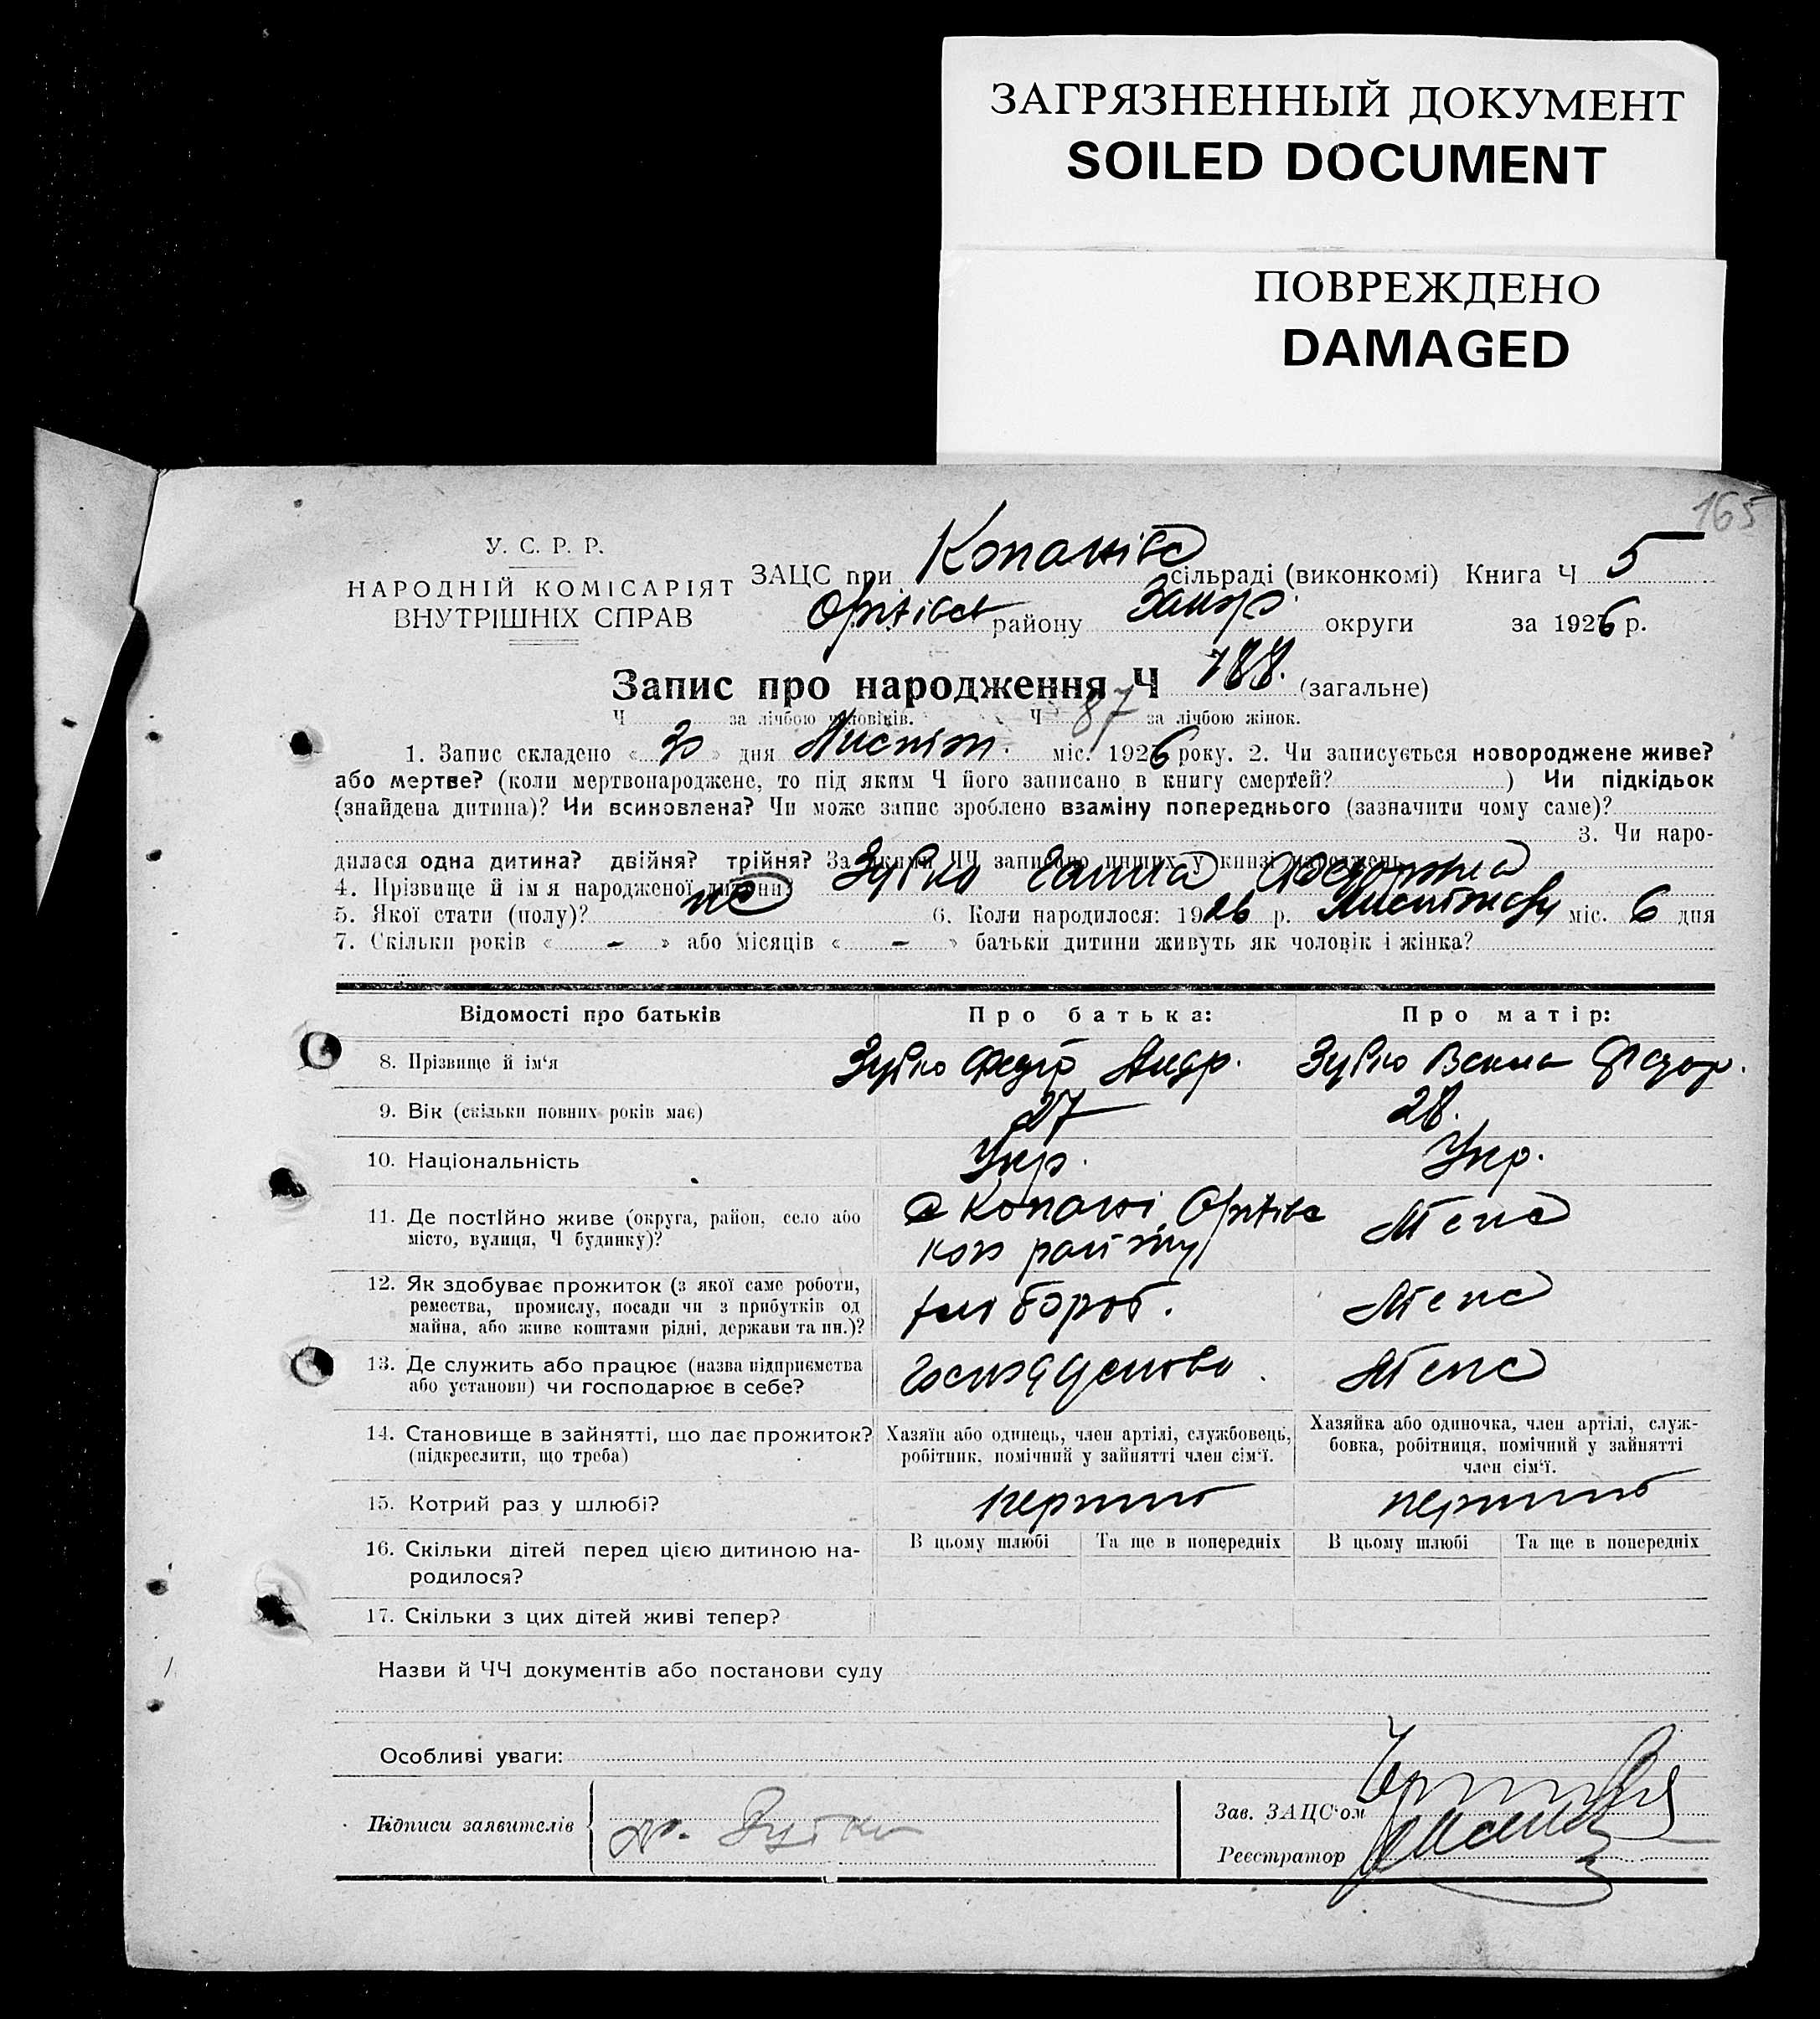 ЗАГРЯЗНЕННЫЙ ДОКУМЕНТ
SOILED DOCUMENT
ПОВРЕЖДЕНО
DAMAGED
165
У. С. Р. Р.
НАРОДНІЙ КОМІСАРІЯТ
ВНУТРІШНІХ СПРАВ
ЗАЦС при сільраді (виконкомі) Книга Ч 5
району Запор. округи за 1926 р.
Запис про народження Ч 188. (загальне)
Ч за лічбою чоловіків. Ч 87 за лічбою жінок.
1. Запис складено « 30 » дня Листоп. міс. 1926 року. 2. Чи записується новороджене живе?
або мертве? (коли мертвонароджене, то під яким Ч його записано в книгу смертей? ) Чи підкідьок
(знайдена дитина)? Чи всиновлена? Чи може запис зроблено взаміну попереднього (зазначити чому саме)?
3. Чи наро-
дилася одна дитина? двійня? трійня? За якими ЧЧ записано инших у книзі народжень
4. Прізвище й ім'я народженої дитини? Зубко Ганна Федоровна
5. Якої стати (полу)? 6. Коли народилося: 1926 р. міс. 6 дня
7. Скільки років « – » або місяців « – » батьки дитини живуть як чоловік і жінка?
Відомості про батьків Про батька: Про матір:
8. Прізвище й ім'я Зубко Федір Андр. Зубко Федор.
9. Вік (скільки повних років має) 27 28.
10. Національність Укр. Укр.
11. Де постійно живе (округа, район, село або
місто, вулиця, Ч будинку)? с Копані Оріхівс
кого району
12. Як здобуває прожиток (з якої саме роботи,
ремества, промислу, посади чи з прибутків од
майна, або живе коштами рідні, держави та ин.)? хлібороб.
13. Де служить або працює (назва підприємства
або установи) чи господарює в себе?
14. Становище в зайнятті, що дає прожиток?
(підкреслити, що треба)
Хазяїн або одинець, член артілі, службовець,
робітник, помічний у зайнятті член сім'ї.
Хазяйка або одиночка, член артілі, служ-
бовка, робітниця, помічний у зайнятті
член сім'ї.
15. Котрий раз у шлюбі? перший перший
16. Скільки дітей перед цією дитиною на-
родилося?
В цьому шлюбі Та ще в попередніх В цьому шлюбі Та ще в попередніх
17. Скільки з цих дітей живі тепер?
Назви й ЧЧ документів або постанови суду
Особливі уваги:
Підписи заявителів Зубко
Зав. ЗАЦС'ом
Реєстратор